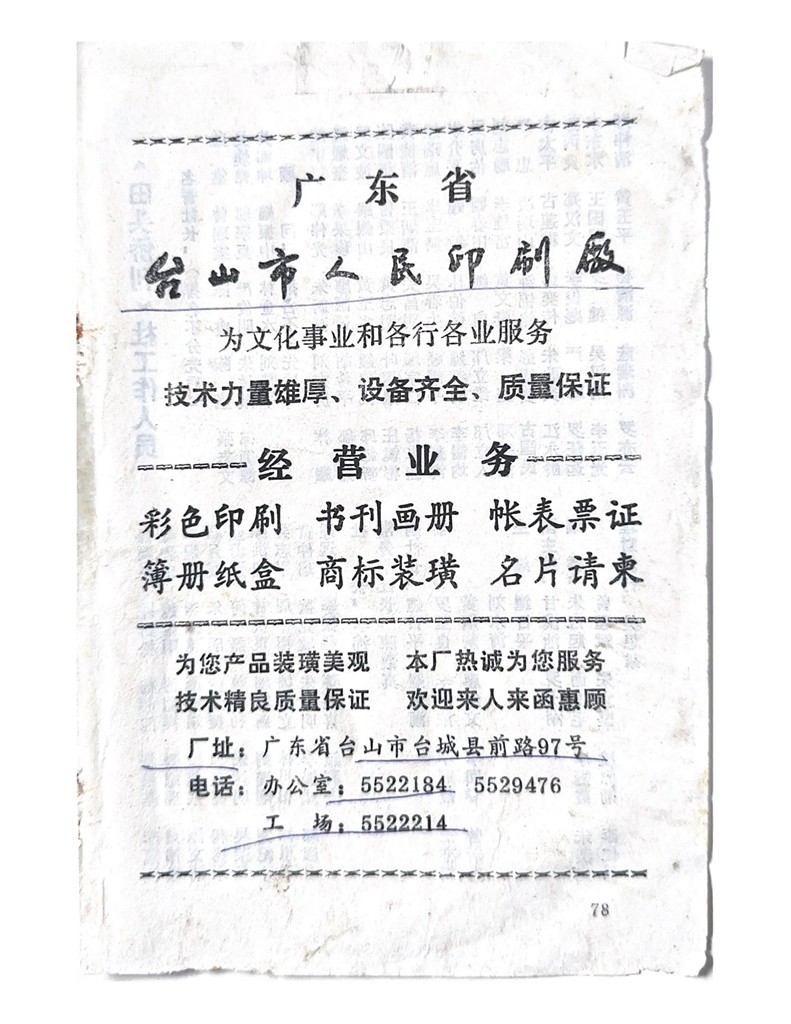 广东省
台山市人民印刷廠
为文化事业和各行各业服务
技术力量雄厚、设备齐全、质量保证
经营业务
彩色印刷 书刊画册 帐表票证
簿册纸盒 商标装璜 名片请柬
为您产品装璜美观 本厂热诚为您服务
技术精良质量保证 欢迎来人来函惠顾
厂址：广东省台山市台城县前路97号
电话：办公室：5522184 5529476
工 场：5522214
78